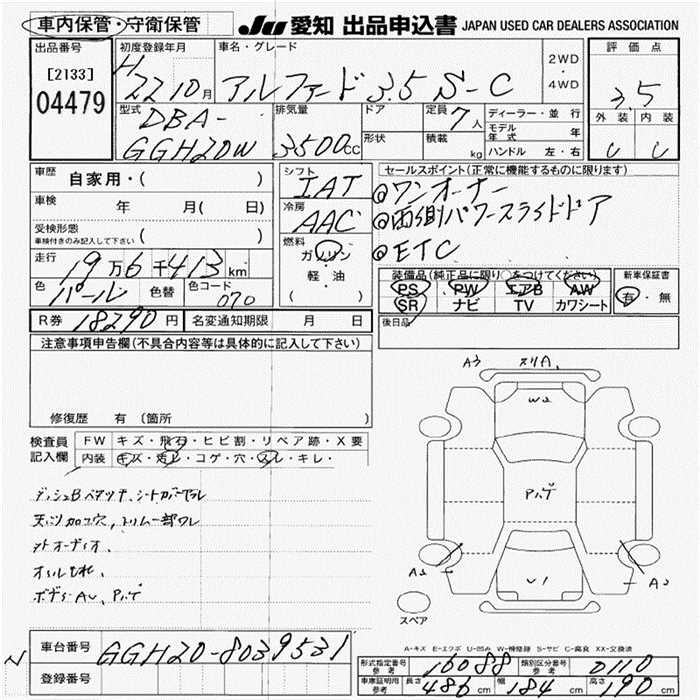 車内保管・守衛保管
JU 愛知 出品申込書 JAPAN USED CAR DEALERS ASSOCIATION
出品番号
[2133]
04479
初度登録年月
H22 10月
車名・グレード
アルファード 3.5 S-C
2WD
・
4WD
評価点
3.5
外装 内装
C C
型式
DBA-
GGH20W
排気量
3500cc
ドア
形状
定員 7人
積載 kg
ディーラー・並行
モデル年式 年
ハンドル 左・右
車歴 自家用・( )
車検 年 月( 日)
受検形態
車検付きのみ記入して下さい ( )
走行 19万6千413km
色 パール 色替 色コード 070
シフト
IAT
冷房
AAC
燃料
ガソリン
・
軽・油
( )
セールスポイント(正常に機能するものに限ります)
◎ワンオーナー
◎両側パワースライドドア
◎ETC
装備品(純正品に限り○をつけてください)
PS PW エアB AW
SR ナビ TV カワシート
新車保証書
有・無
後日品
R券 18290円 名変通知期限 月 日
注意事項申告欄(不具合内容等は具体的に記入して下さい)
修復歴 有 〔箇所
検査員
記入欄
FW キズ・飛石・ヒビ割・リペア跡・X要
内装 キズ・汚レ・コゲ・穴・スレ・キレ・
外オーディオ
ボデーAU、
A3 スリA
W2
U1
A2
スペア
A-キズ E-エクボ U-凹み W-補修跡 S-サビ C-腐食 XX-交換済
車台番号 GGH20-8039531
登録番号
形式指定番号 参考 16088 類別区分番号 参考 0110
車庫証明用 参考 長さ 486cm 幅 184cm 高さ 190cm